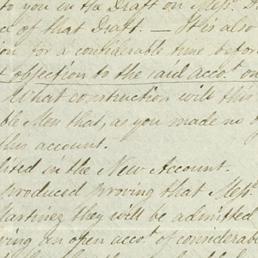 to you in the Draft on Mess.
ce of that Draft. — It is also
on for a considerable time before
t objection to the said accot. on
What construction will this
ble Men that, as you made no o
this account.
dited in the New Account.
produced proving that Messrs.
Martinez they will be admitted
ving an open accot. of considerab